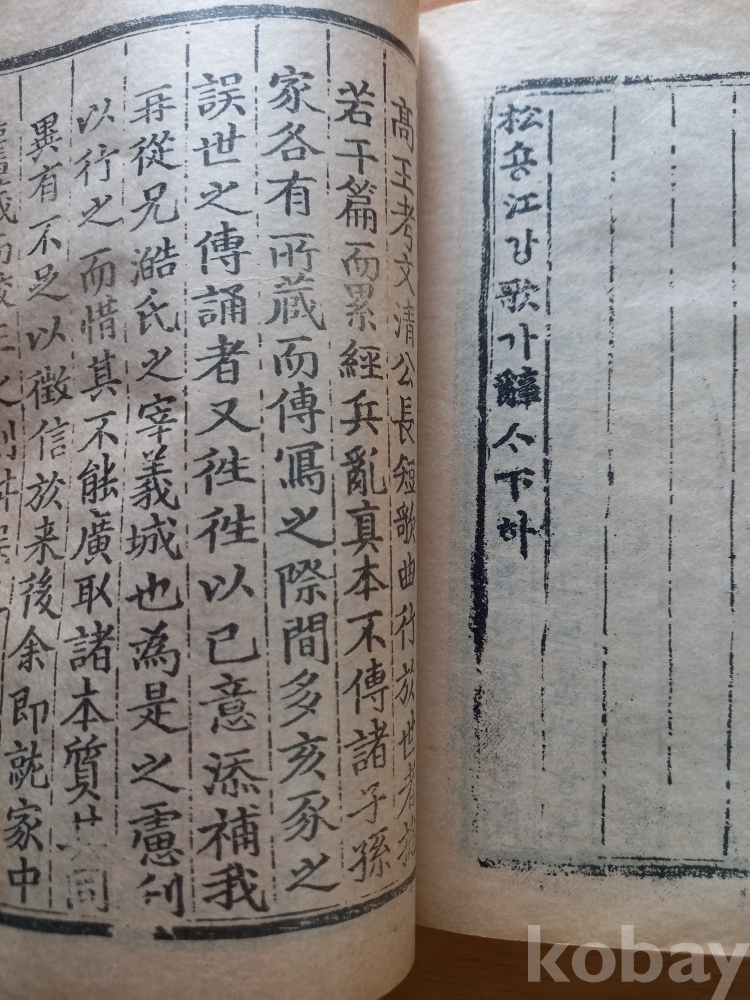 松숑江강歌가辭ᄉᆞ下하
高王考文清公長短歌曲行於世者
若干篇而累經兵亂真本不傳諸子孫
家各有所蔵而傳寫之際間多亥豕之
誤世之傳誦者又徃徃以已意添補我
再從兄澔氏之宰義城也為是之慮刻
以行之而惜其不能廣取諸本質其同
異有不足以徵信於来後余即就家中
kobay